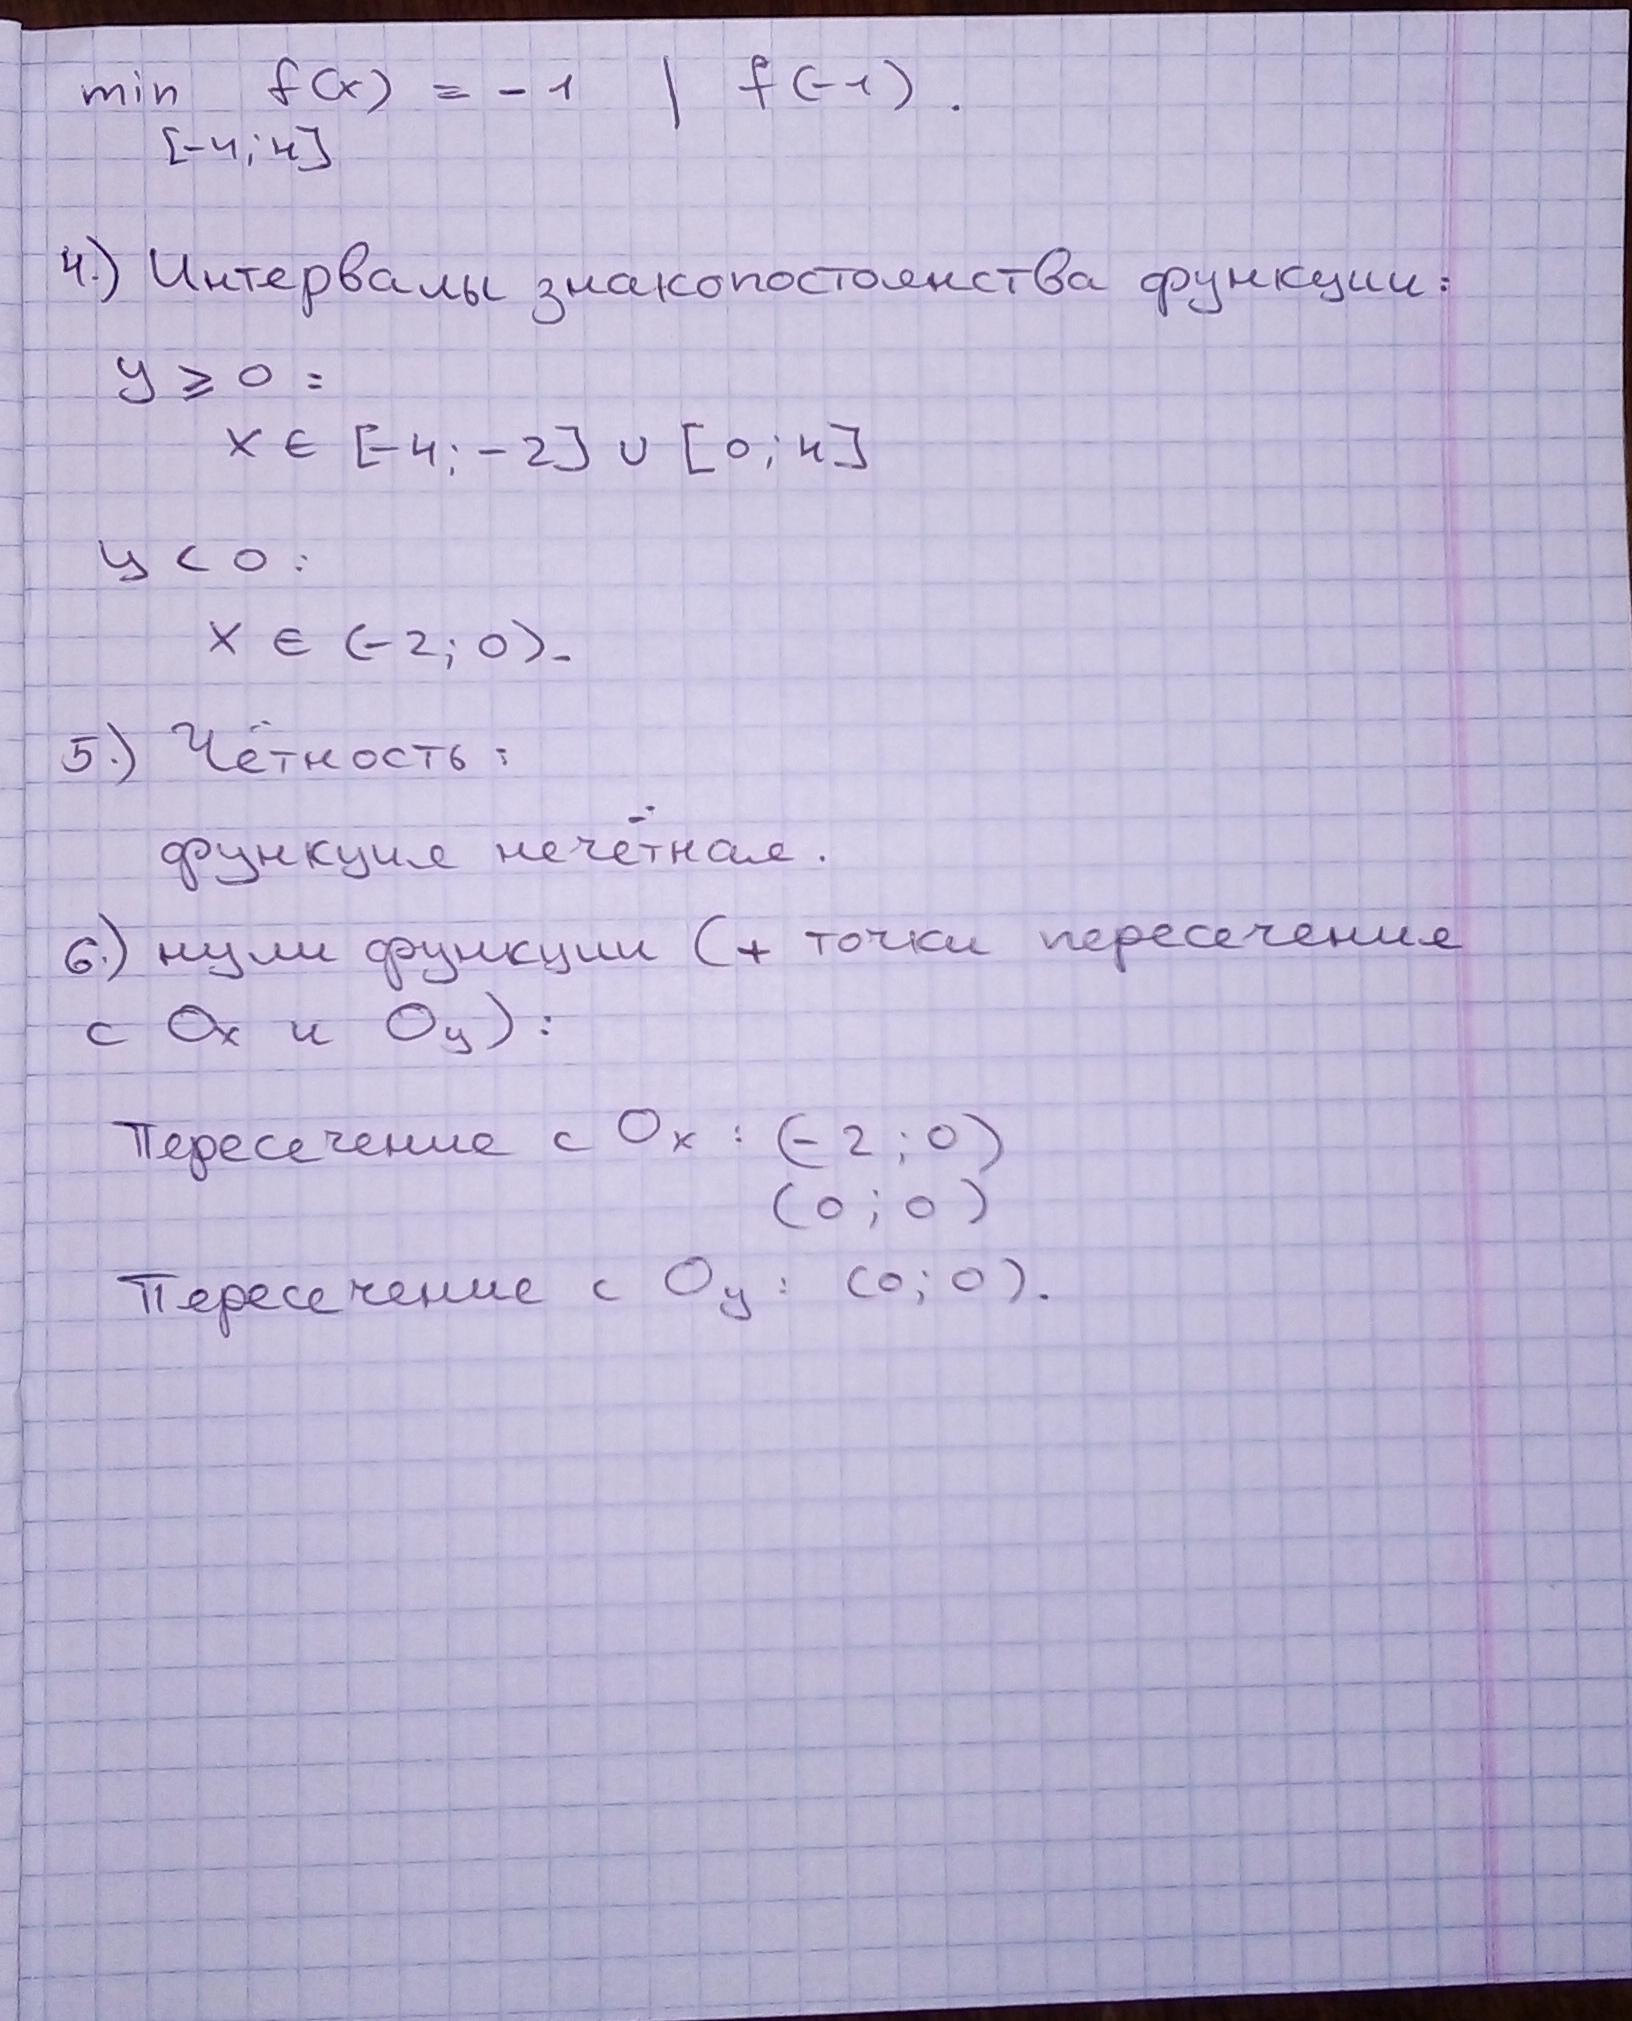 min f(x) = -1 | f(-1).
[-4; 4]
4.) Интервалы знакопостоянства функции:
y ⩾ 0 :
x ∈ [-4; -2] ∪ [0; 4]
y < 0 :
x ∈ (-2; 0).
5.) Чётность:
функция нечётная.
6.) нули функции (+ точки пересечения
с Ox и Oy):
Пересечение с Ox : (-2; 0)
(0; 0)
Пересечение с Oy : (0; 0).